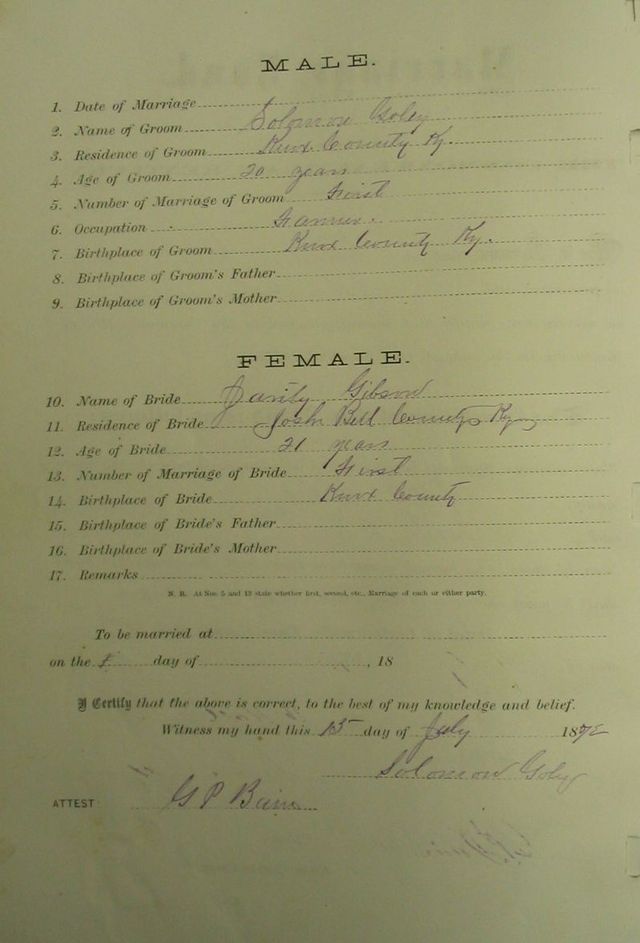 MALE.
1. Date of Marriage
2. Name of Groom Solomon Goley
3. Residence of Groom Knox County Ky.
4. Age of Groom 20 years
5. Number of Marriage of Groom First
6. Occupation Farmer.
7. Birthplace of Groom Knox County Ky.
8. Birthplace of Groom's Father
9. Birthplace of Groom's Mother
FEMALE.
10. Name of Bride Gibson
11. Residence of Bride Josh Bell County Ky
12. Age of Bride 21 years
13. Number of Marriage of Bride First
14. Birthplace of Bride Knox County
15. Birthplace of Bride's Father
16. Birthplace of Bride's Mother
17. Remarks
N. B. At Nos 5 and 13 state whether first, second, etc., Marriage of each or either party.
To be married at
on the day of , 18
I Certify that the above is correct, to the best of my knowledge and belief.
Witness my hand this 15 day of July 18
Solomon Goley
ATTEST G P Bain